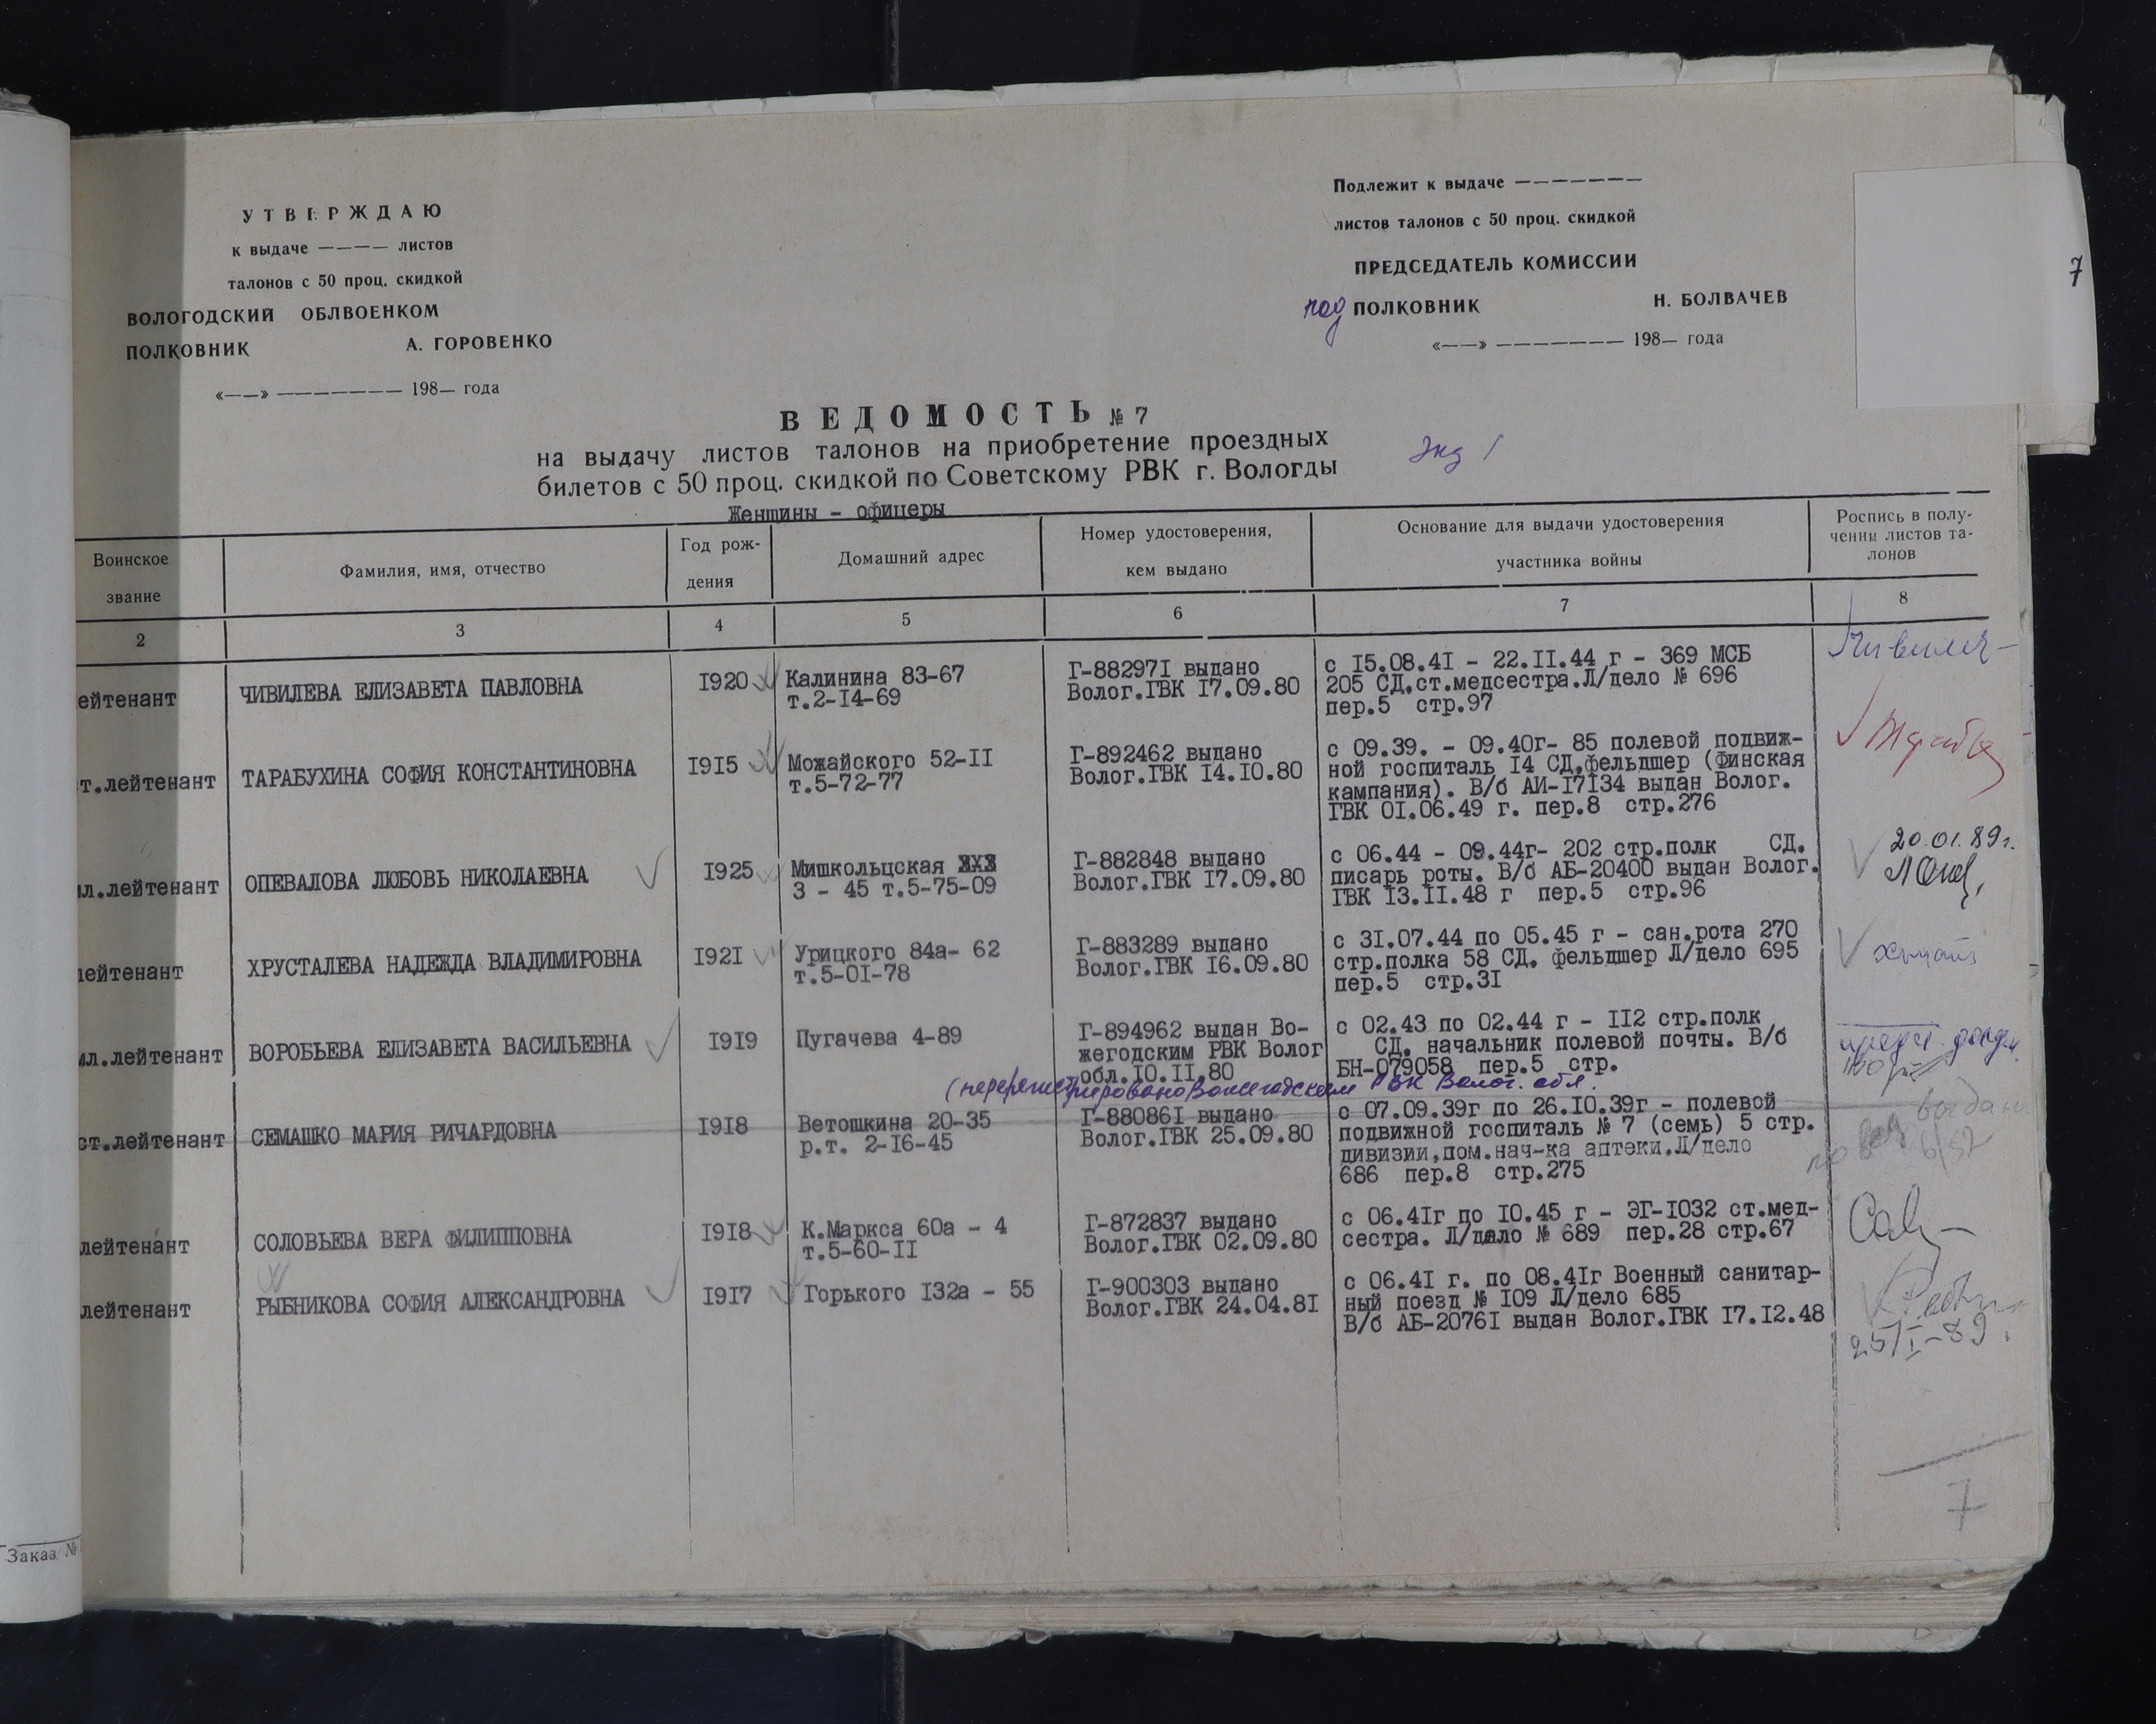 УТВЕРЖДАЮ
к выдаче ———— листов
талонов с 50 проц. скидкой
ВОЛОГОДСКИЙ ОБЛВОЕНКОМ
ПОЛКОВНИК А. ГОРОВЕНКО
«——» ——————— 198— года
Подлежит к выдаче ———————
листов талонов с 50 проц. скидкой
ПРЕДСЕДАТЕЛЬ КОМИССИИ
под ПОЛКОВНИК Н. БОЛВАЧЕВ
«——» ——————— 198— года
7
ВЕДОМОСТЬ № 7
на выдачу листов талонов на приобретение проездных
билетов с 50 проц. скидкой по Советскому РВК г. Вологды
Экз 1
Женщины - офицеры
Воинское
звание
Фамилия, имя, отчество
Год рож-
дения
Домашний адрес
Номер удостоверения,
кем выдано
Основание для выдачи удостоверения
участника войны
Роспись в полу-
чении листов та-
лонов
2 3 4 5 6 7 8
ейтенант
ЧИВИЛЕВА ЕЛИЗАВЕТА ПАВЛОВНА
I920
Калинина 83-67
т.2-I4-69
Г-88297I выдано
Волог.ГВК I7.09.80
с I5.08.4I - 22.II.44 г - 369 МСБ
205 СД,ст.медсестра.Л/дело № 696
пер.5 стр.97
т.лейтенант
ТАРАБУХИНА СОФИЯ КОНСТАНТИНОВНА
I9I5
Можайского 52-II
т.5-72-77
Г-892462 выдано
Волог.ГВК I4.I0.80
с 09.39. - 09.40г- 85 полевой подвиж-
ной госпиталь I4 СД,фельдшер (Финская
кампания). В/б АИ-I7I34 выдан Волог.
ГВК 0I.06.49 г. пер.8 стр.276
мл.лейтенант
ОПЕВАЛОВА ЛЮБОВЬ НИКОЛАЕВНА
I925
Мишкольцская
3 - 45 т.5-75-09
Г-882848 выдано
Волог.ГВК I7.09.80
с 06.44 - 09.44г- 202 стр.полк СД.
писарь роты. В/б АБ-20400 выдан Волог.
ГВК I3.II.48 г пер.5 стр.96
20.01.89г.
лейтенант
ХРУСТАЛЕВА НАДЕЖДА ВЛАДИМИРОВНА
I92I
Урицкого 84а- 62
т.5-0I-78
Г-883289 выдано
Волог.ГВК I6.09.80
с 3I.07.44 по 05.45 г - сан.рота 270
стр.полка 58 СД, фельдшер Л/дело 695
пер.5 стр.3I
мл.лейтенант
ВОРОБЬЕВА ЕЛИЗАВЕТА ВАСИЛЬЕВНА
I9I9
Пугачева 4-89
Г-894962 выдан Во-
жегодским РВК Волог
обл.I0.II.80
с 02.43 по 02.44 г - II2 стр.полк
СД, начальник полевой почты. В/б
БН-079058 пер.5 стр.
(перерегистрировано Вожегодским РВК Волог. обл.
ст.лейтенант
СЕМАШКО МАРИЯ РИЧАРДОВНА
I9I8
Ветошкина 20-35
р.т. 2-I6-45
Г-88086I выдано
Волог.ГВК 25.09.80
с 07.09.39г по 26.I0.39г - полевой
подвижной госпиталь № 7 (семь) 5 стр.
дивизии,пом.нач-ка аптеки.Л/дело
686 пер.8 стр.275
лейтенант
СОЛОВЬЕВА ВЕРА ФИЛИППОВНА
I9I8
К.Маркса 60а - 4
т.5-60-II
Г-872837 выдано
Волог.ГВК 02.09.80
с 06.4Iг по I0.45 г - ЭГ-I032 ст.мед-
сестра. Л/дело № 689 пер.28 стр.67
лейтенант
РЫБНИКОВА СОФИЯ АЛЕКСАНДРОВНА
I9I7
Горького I32а - 55
Г-900303 выдано
Волог.ГВК 24.04.8I
с 06.4I г. по 08.4Iг Военный санитар-
ный поезд № I09 Л/дело 685
В/б АБ-2076I выдан Волог.ГВК I7.I2.48
25/I-89.
7
Заказ №